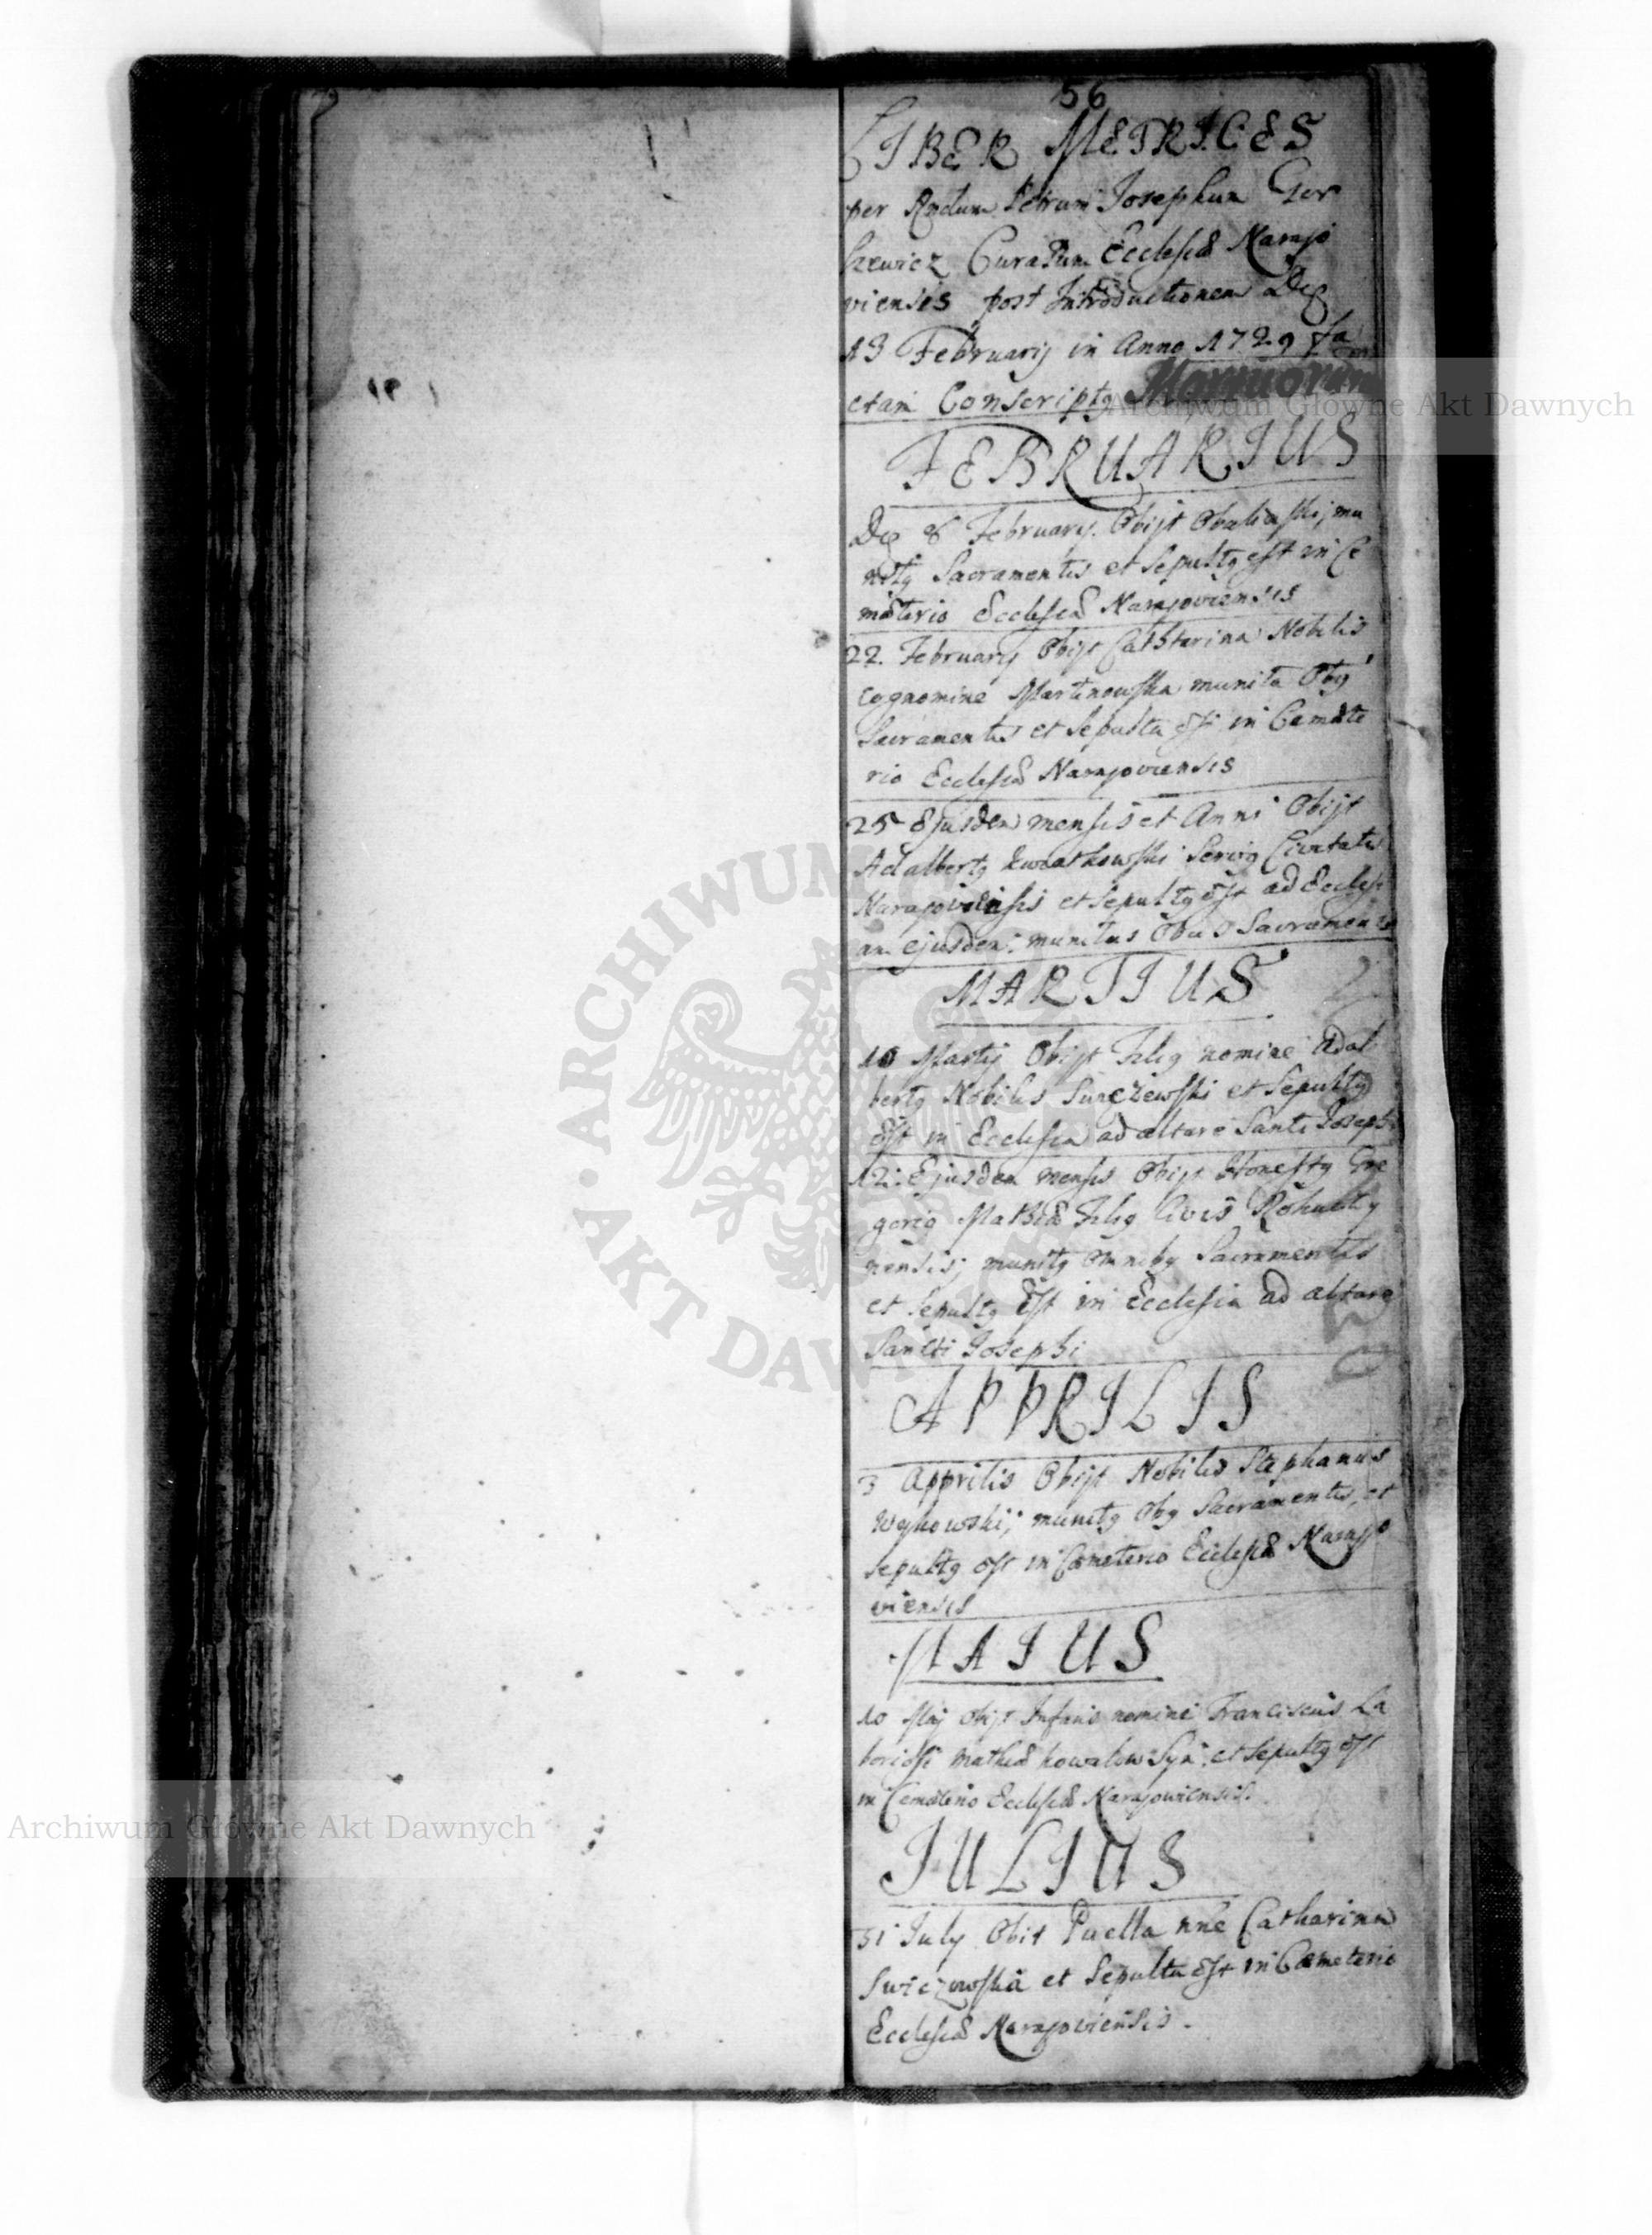 56
LIBER METRICES
per Rndum Petrum Josephum Gor
szewicz Curatum Ecclesiæ Narajo
viensis post Introductionem Die
13 February in Anno 1729 fa
ctam Conscriptq Mortuorum
FEBRUARIUS
Die 8 February. Obijt mu
nitq Sacramentis et Sepultq est in Cæ
mæterio Ecclesiæ Narajoviensis
22. February Obijt Catharina Nobilis
cognomine Martinowska munita Obq
Sacramentis et Sepulta est in Cæmæte
rio Ecclesiæ Narajoviensis
25 Ejusdem mensis et Anni Obijt
Adalbertq Kwiatkowski Servq Civitatis
Narajoviensis et Sepultq est ad Ecclesi
am ejusdem: munitus Obus Sacramentis
MARTIUS
10 Martij Obijt Filiq nomine Adal
bertq Nobilis et Sepultq
Est in Ecclesia ad altare Santi Josephi
12. Ejusdem mensis Obijt Honestq Gre
goriq Mathiæ Filiq Civis Rohaty
nensis; munitq Omnibq Sacramentis
et Sepultq Est in Ecclesia ad altare
Sancti Josephi
APPRILIS
3 Apprilis Obijt Nobilis Stephanus
Wyhowski; munitq Obq Sacramentis, et
sepultq est in Cæmeterio Ecclesiæ Narajo
viensis
MAIUS
10 Maj Obijt Infans nomine Franciscus La
boriosi Mathiæ Kowalow Syn: et Sepultq est
in Cæmæterio Ecclesiæ Narajoviensis.
JULIUS
31 July Obit Puella nne Catharina
et Sepulta Est in Cæmeterio
Ecclesiæ Narajoviensis.
Archiwum Główne Akt Dawnych
Archiwum Główne Akt Dawnych
ARCHIWUM GŁÓWNE AKT DAWNYCH